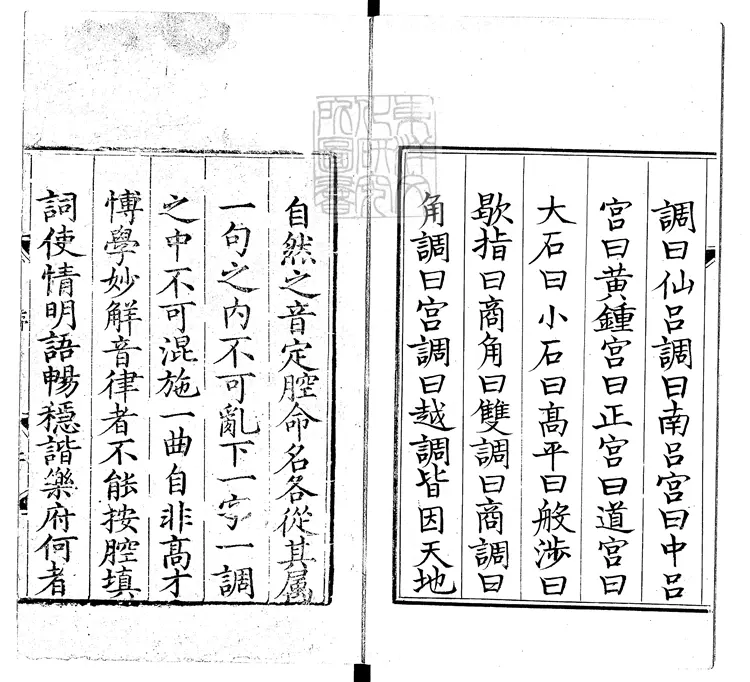 調曰仙吕調曰南吕宫曰中吕
宫曰黄鍾宫曰正宫曰道宫曰
大石曰小石曰髙平曰般渉曰
歇指曰商角曰雙調曰商調曰
角調曰宫調曰越調皆因天地
自然之音定腔命名各從其属
一句之内不可亂下一字一調
之中不可混施一曲自非髙才
博學妙解音律者不能按腔填
詞使情明語暢穏諧樂府何者